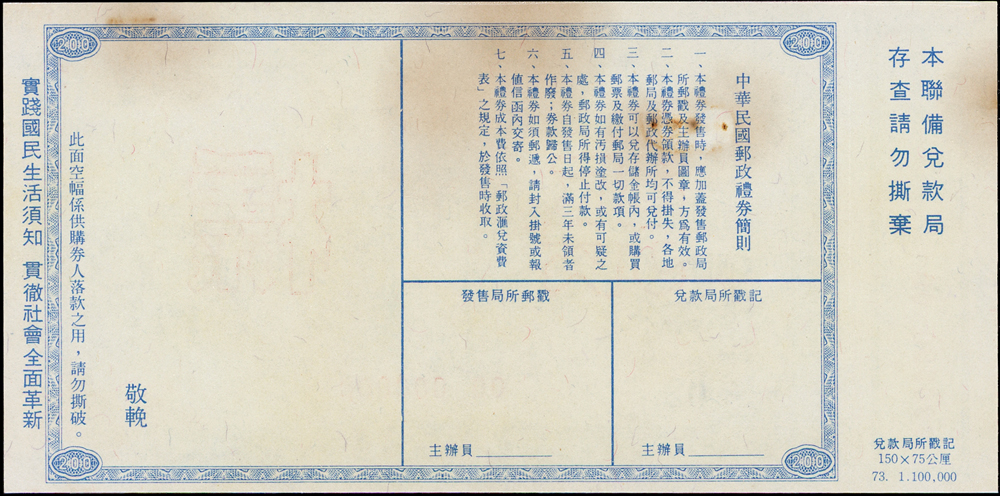 本聯備兌款局
存查請勿撕棄
兌款局所戳記
150×75公厘
73. 1.100,000
200
200
中華民國郵政禮券簡則
一、本禮券發售時，應加蓋發售郵政局
所郵戳及主辦員圖章，方為有效。
二、本禮券憑券領款，不得掛失，各地
郵局及郵政代辦所均可兌付。
三、本禮券可以兌存儲金帳內，或購買
郵票及繳付郵局一切款項。
四、本禮券如有汚損塗改，或有可疑之
處，郵政局所得停止付款。
五、本禮券自發售日起，滿三年未領者
作廢；券款歸公。
六、本禮券如須郵遞，請封入掛號或報
値信函內交寄。
七、本禮券成本費依照「郵政滙兌資費
表」之規定，於發售時收取。
兌款局所戳記
主辦員
發售局所郵戳
主辦員
敬輓
此面空幅係供購券人落款之用，請勿撕破。
200
200
實踐國民生活須知 貫徹社會全面革新